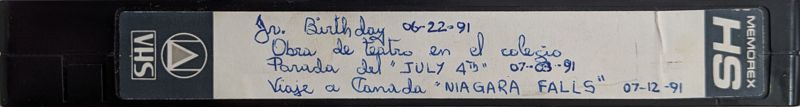 VHS
Jr. Birthday 06-22-91
Obra de teatro en el colegio
Parada del "JULY 4TH" 07-03-91
Viaje a Canada "NIAGARA FALLS" 07-12-91
MEMOREX
HS